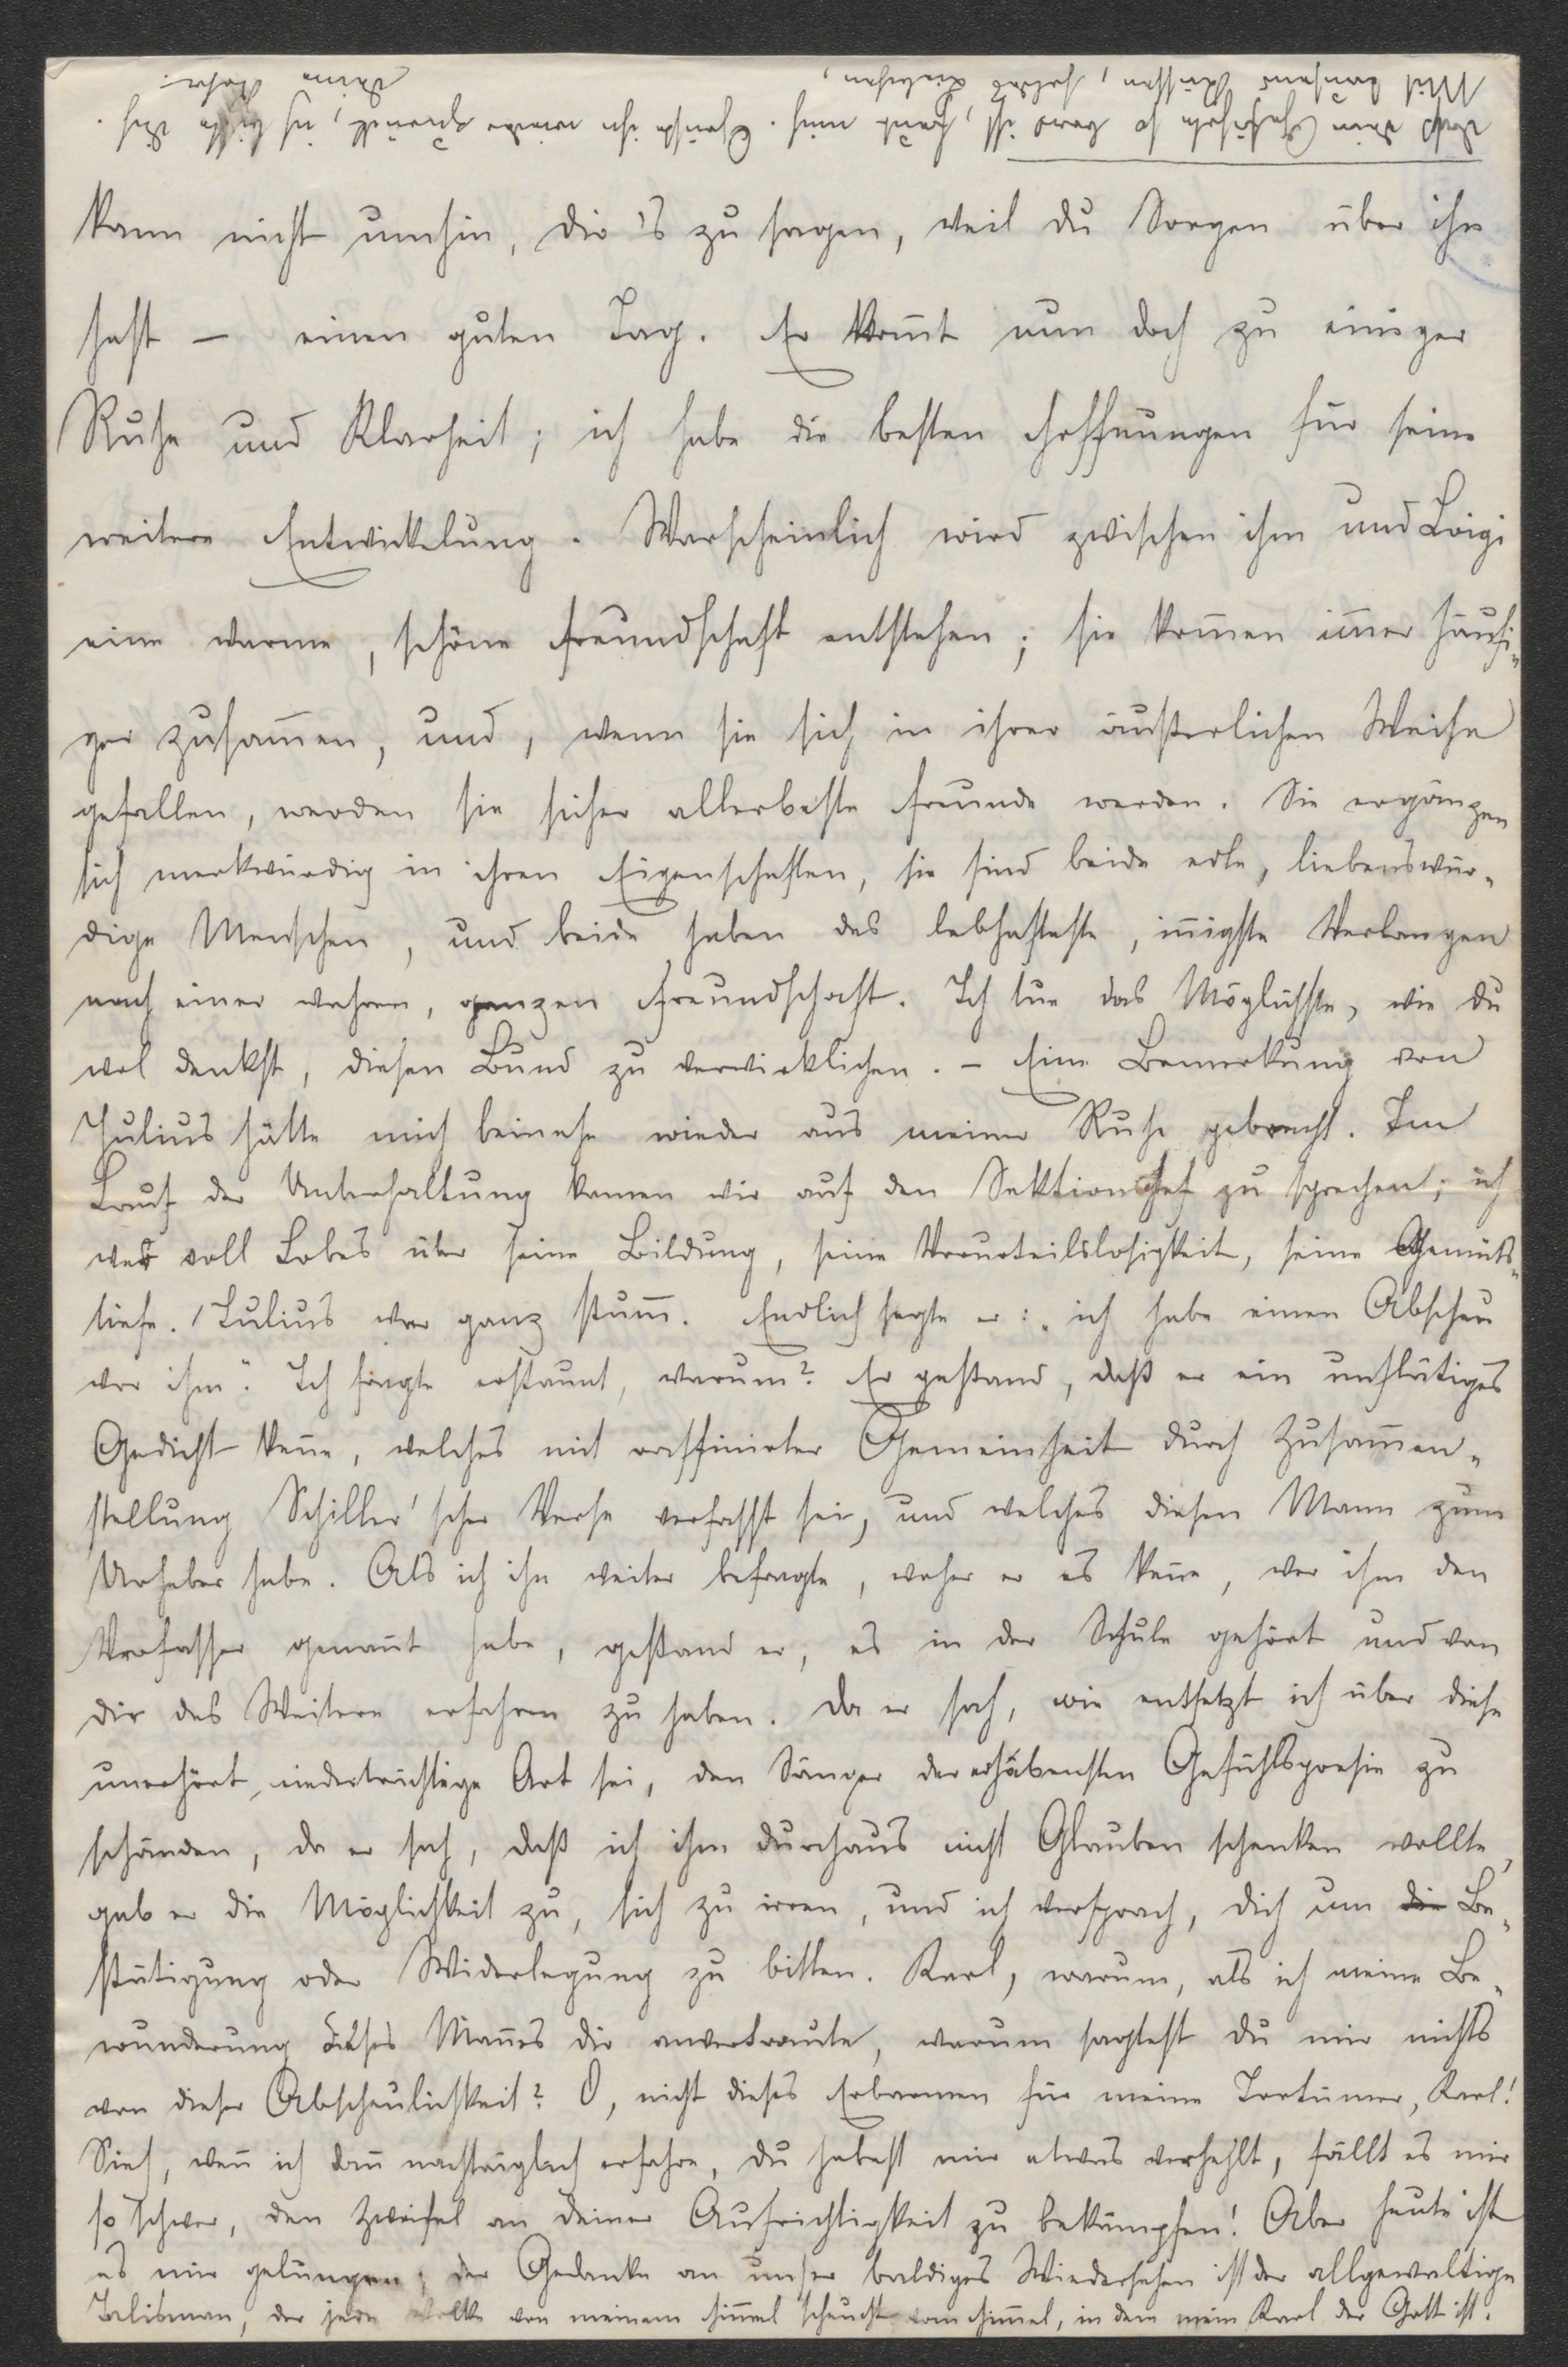 kann nicht umhin, dir's zu sagen, weil du Sorgen über ihn
hast – einen guten Tag. Er kom̄t nun doch zu einiger
Ruhe und Klarheit; ich habe die besten Hoffnungen für seine
weitere Entwickelung. Warscheinlich wird zwischen ihm und Loigi
eine warme, schöne Freundschaft entstehen; sie kom̄en im̄er häufi-
ger zusam̄en, und, wenn sie sich in ihrer äußerlichen Weise
gefallen, werden sie sicher allerbeste Freunde werden. Sie ergänzen
sich merkwürdig in ihren Eigenschaften, sie sind beide edle, liebenswür-
dige Menschen, und beide haben das lebhafteste, in̄igste Verlangen
nach einer wahren, ganzen Freundschaft. Ich tue das Möglichste, wie du
wol denkst, diesen Bund zu verwirklichen. – Eine Bemerkung von
Julius hätte mich beinahe wieder aus meiner Ruhe gebracht. Im
Lauf der Unterhaltung kamen wir auf den Sektionschef zu sprechen; ich
war voll Lobes über seine Bildung, seine Vorurteilslosigkeit, seine Gemüts-
tiefe. Julius war ganz stum̄. Endlich sagte er: „ich habe einen Abscheu
vor ihm“. Ich fragte erstaunt, warum? Er gestand, daß er ein unflätiges
Gedicht ken̄e, welches mit raffinirter Gemeinheit durch Zusam̄en-
stellung Schiller'scher Verse verfasst sei, und welches diesen Mann zum
Urheber habe. Als ich ihn weiter befragte, woher er es ken̄e, wer ihm den
Verfasser genan̄t habe, gestand er, es in der Schule gehört und von
dir das Weitere erfahren zu haben. Da er sah, wie entsetzt ich über diese
unerhört niederträchtige Art sei, den Sänger der erhabensten Gefühlspoesie zu
schänden, da er sah, daß ich ihm durchaus nicht Glauben schenken wollte,
gab er die Möglichkeit zu, sich zu irren, und ich versprach, dich um die Be-
stätigung oder Widerlegung zu bitten. Karl, warum, als ich meine Be-
wunderung dieses Man̄es dir anvertraute, warum sagtest du mir nichts
von dieser Abscheulichkeit? O, nicht dieses Erbarmen für meine Irrtümer, Karl!
Sieh, wen̄ ich dan̄ nachträglich erfahre, du habest mir etwas verhehlt, fällt es mir
so schwer, den Zweifel an deiner Aufrichtigkeit zu bekämpfen! Aber heute ist
es mir gelungen; der Gedanke an unser baldiges Wiedersehen ist der allgewaltige
Talisman, der jede Wolke von meinem Him̄el scheucht vom Him̄el, in dem mein Karl der Gott ist.
Daß dein Gefühl so ist, mich. ich wieder zurück, ich küsse dich.
Mit tausend Küssen, Liebchen,
deine